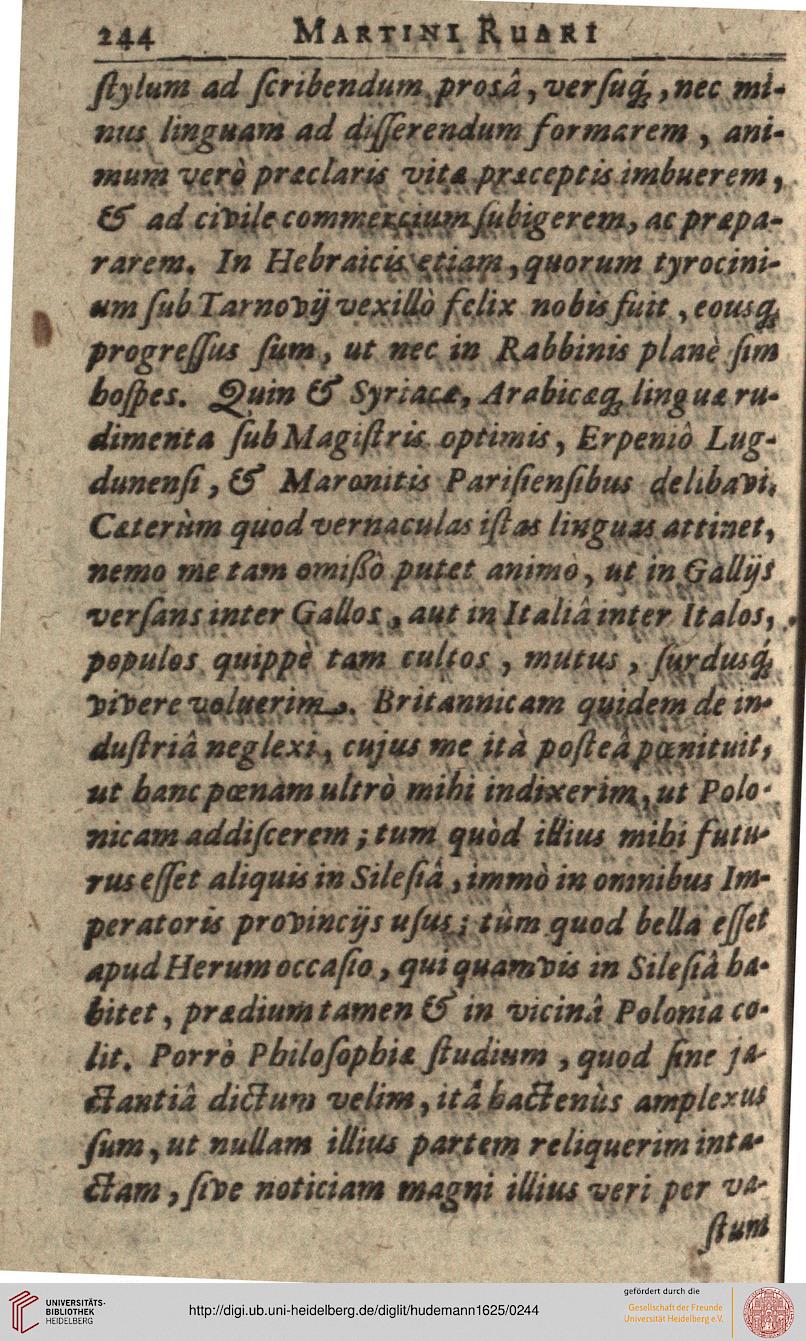 244 MARTINI RUARI
ſtylum ad ſcribendum proſâ, verſuq́;, nec mi-
nus linguam ad diſſerendum formarem, ani-
mum verò præclaris vitæ præceptis imbuerem,
& ad civile commercium ſubigerem, ac præpa-
rarem. In Hebraicis etiam, quorum tyrocini-
um ſub Tarnovij vexillò felix nobis fuit, eousq;
progreſſus ſum, ut nec in Rabbinis planè ſim
hoſpes. Quin & Syriacæ, Arabicæq; linguæ ru-
dimenta ſub Magiſtris optimis, Erpeniô Lug-
dunenſi, & Maronitis Pariſienſibus delibavi.
Cæterùm quod vernaculas iſtas linguas attinet,
nemo me tam omißò putet animò, ut in Gallijs
verſans inter Gallos, aut in Italiâ inter Italos,
populos quippè tam cultos, mutus, ſurdusq́;
vivere voluerim. Britannicam quidem de in-
duſtriâ neglexi, cujus me ità poſteâ pœnituit,
ut hanc pœnam ultrò mihi indixerim, ut Polo-
nicam addiſcerem; tum quòd illius mihi futu-
rus eſſet aliquis in Sileſiâ, immò in omnibus Im-
peratoris provincijs uſus; tùm quod bella eſſet
apud Herum occaſio, qui quamvis in Sileſiâ ha-
bitet, prædium tamen & in vicinâ Polonia co-
lit. Porrò Philoſophiæ ſtudium, quod ſine ja-
ctantiâ dictum velim, itâ hactenùs amplexus
ſum, ut nullam illius partem reliquerim inta-
ctam, ſive noticiam magni illius veri per va-
ſtum
UNIVERSITÄTS-
BIBLIOTHEK
HEIDELBERG
http://digi.ub.uni-heidelberg.de/diglit/hudemann1625/0244
gefördert durch die
Gesellschaft der Freunde
Universität Heidelberg e.V.